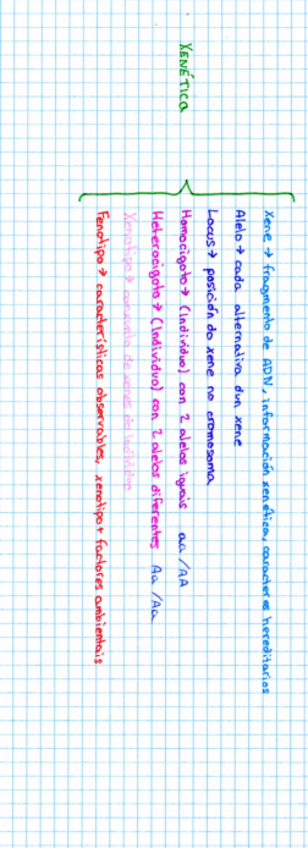 XENÉTICA
Xene → fragmento de ADN, información xenética, caracteres hereditarios
Alelo → cada alternativa dun xene
Locus → posición do xene no cromosoma
Homocigoto → (Individuo) con 2 alelos iguais aa / AA
Heterocigoto → (Individuo) con 2 alelos diferentes Aa / Aa
Xenotipo → conxunto de xenes do individuo
Fenotipo → características observables, xenotipo + factores ambientais